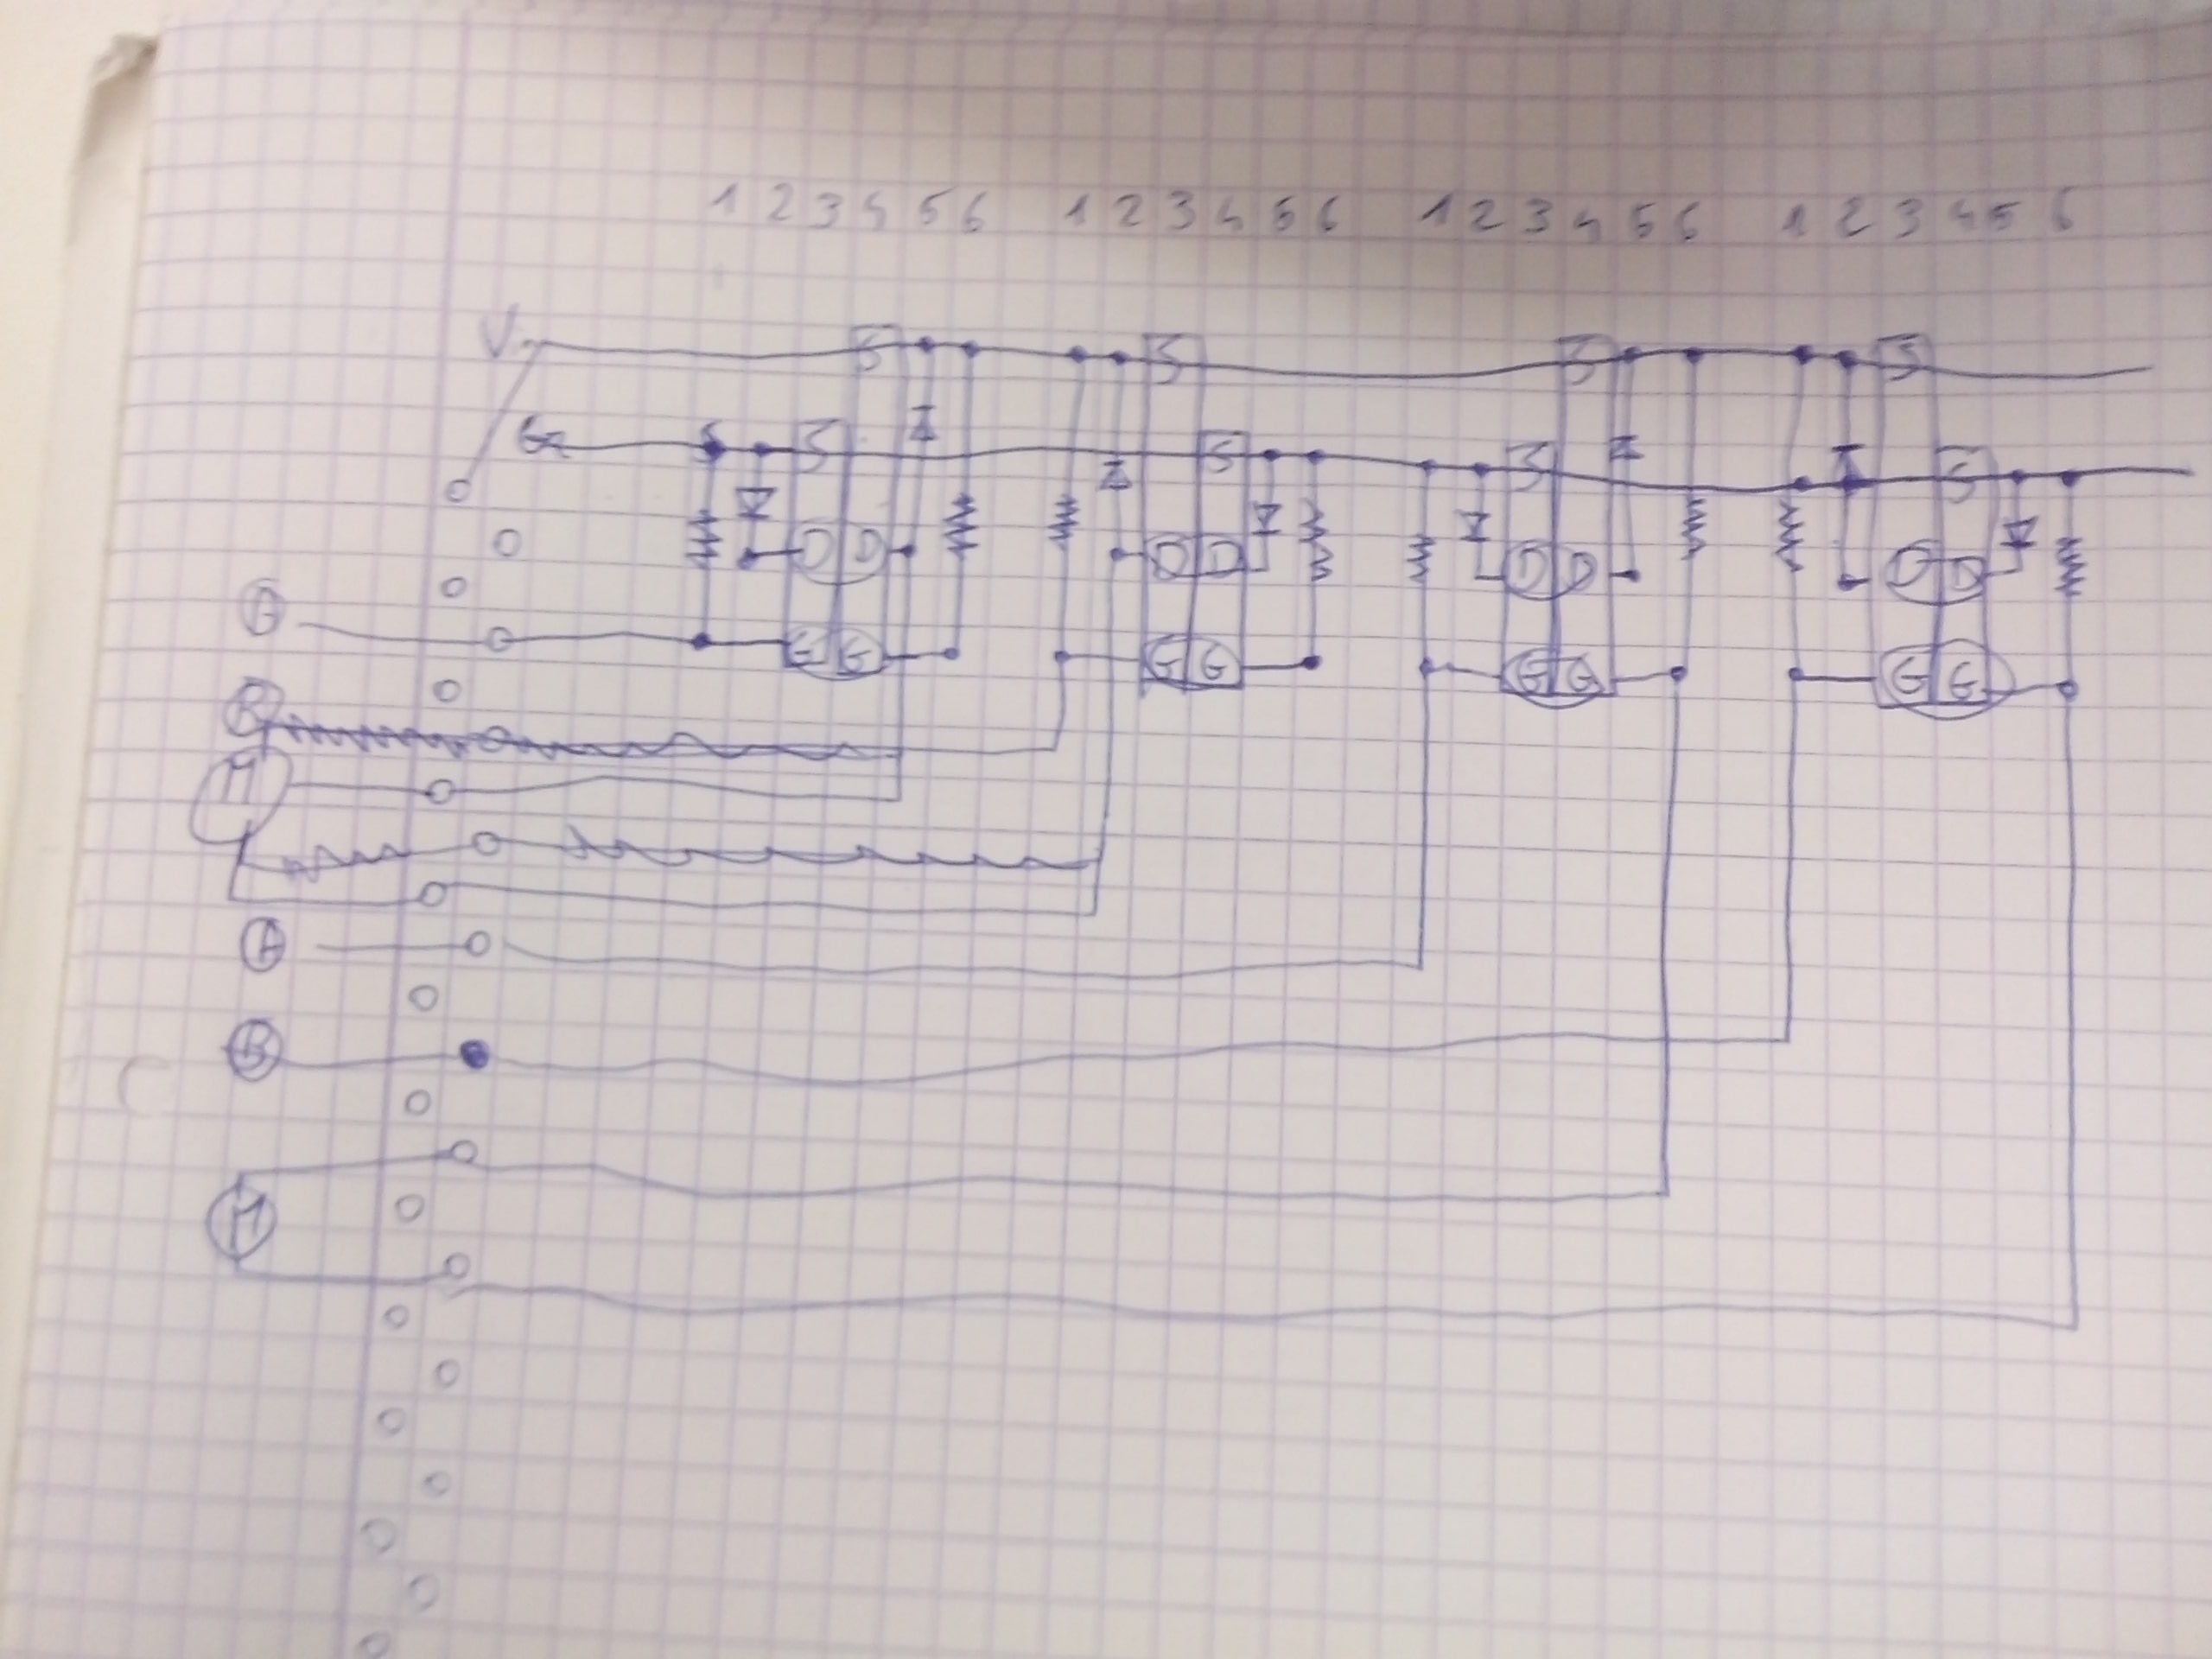 1 2 3 4 5 6 1 2 3 4 5 6 1 2 3 4 5 6 1 2 3 4 5 6
V
S S S S
S S S S
D D D D D D D D
G G G G G G G G
M
A
B
M